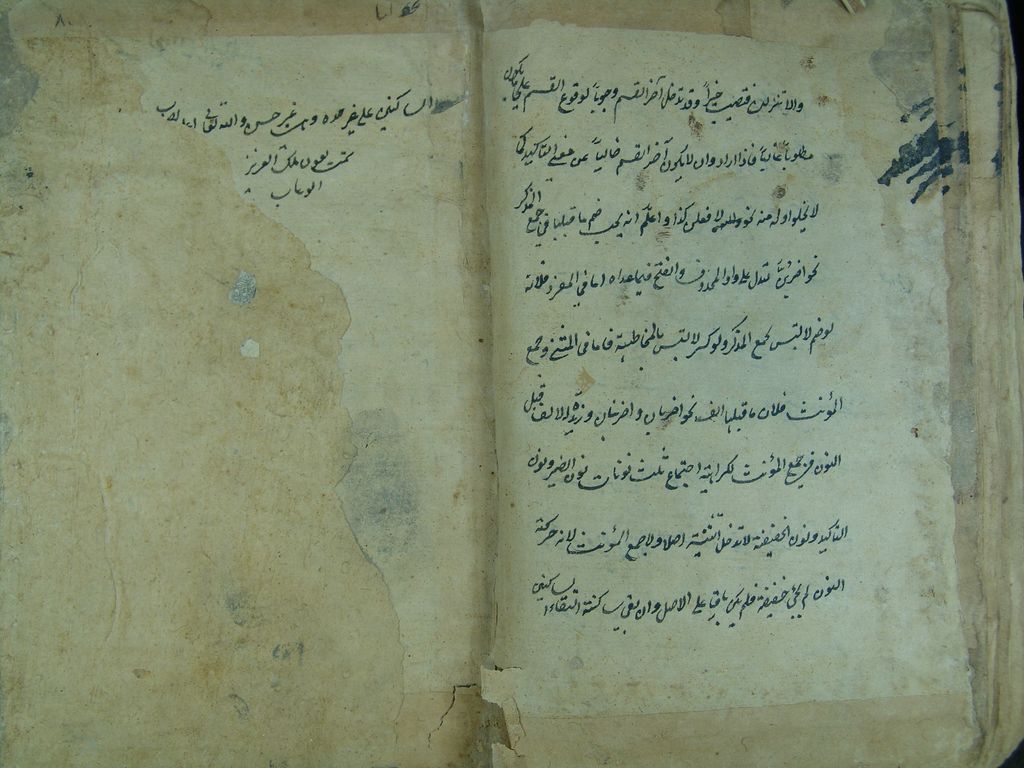 والا تنزلن فتصيب خيراً وقد تدخل آخر القسم وجوباً لوقوع القسم على ما يكون
مطلوباً غالباً فاذا ارادوا ان لا يكون آخر القسم خالياً عن معنى التأكيد كما
لا يخلوا اوله منه نحو والله لافعلن كذا واعلم انه يجب ضم ما قبلها في جمع المذكر
نحو اضربُنّ لتدل على واو المحذوف والفتح فيما عداه اما في المفرد فلانه
لو ضم لالتبس بجمع المذكر ولو كسر لالتبس بالمخاطبة فاما في المثنى وجمع
المؤنث فلان ما قبلها الف نحو اضربان واضربنان وزيدت الالف قبل
النون في جمع المؤنث لكراهية اجتماع ثلث نونات نون الضمير ونون
التأكيد ونون الخفيفة لا تدخل التثنية اصلا ولا جمع المؤنث لانه لو حركت
النون لم يبق خفيفة فلم يكن باقيا على الاصل وان بقي ساكنة التقاء الساكنين
الساكنين على غير حده وهو غير حسن والله تعالى اعلم بالصواب
تمت بعون ملك العزيز
الوهاب